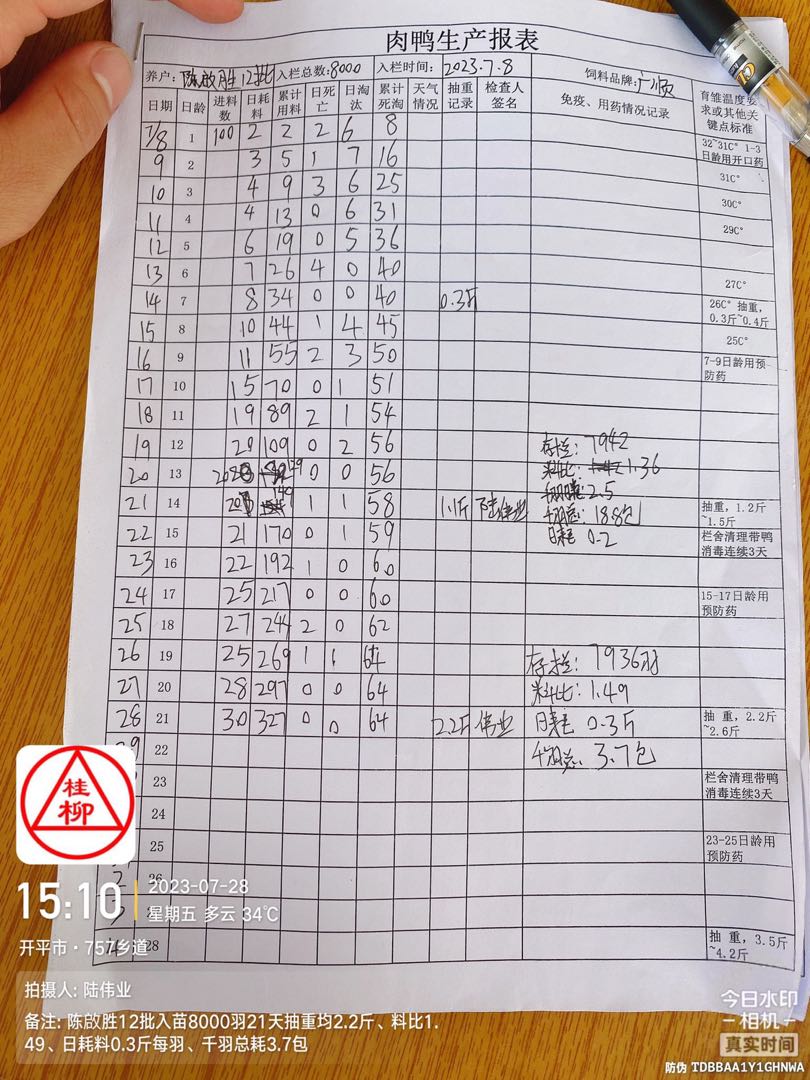 肉鸭生产报表
养户: 陈啟胜12批 入栏总数:8000 入栏时间: 2023.7.8 饲料品牌:广顺
日期 日龄 进料数 日耗料 累计用料 日死亡 日淘汰 累计死淘 天气情况 抽重记录 检查人签名 免疫、用药情况记录 育雏温度要求或其他关键点标准
7/8 1 100 2 2 2 6 8 32~31C° 1-3日龄用开口药
9 2 3 5 1 7 16 31C°
10 3 4 9 3 6 25 30C°
11 4 4 13 0 6 31 29C°
12 5 6 19 0 5 36
13 6 7 26 4 0 40 27C°
14 7 8 34 0 0 40 0.3斤 26C° 抽重,0.3斤~0.4斤
15 8 10 44 1 4 45 25C°
16 9 11 55 2 3 50 7-9日龄用预防药
17 10 15 70 0 1 51
18 11 19 89 2 1 54
19 12 20 109 0 2 56 存栏: 7942
20 13 0 0 56 料比: 1.36
2.5
21 14 1 1 58 1.1斤 陆伟业 千羽总: 18.8包 抽重,1.2斤~1.5斤
22 15 21 170 0 1 59 日耗 0.2 栏舍清理带鸭消毒连续3天
23 16 22 192 1 0 60
24 17 25 217 0 0 60 15-17日龄用预防药
25 18 27 244 2 0 62
26 19 25 269 1 1 64 存栏: 7936羽
27 20 28 297 0 0 64 料比: 1.49
28 21 30 327 0 0 64 2.2斤 伟业 日耗 0.3斤 抽 重,2.2斤~2.6斤
22 千羽总: 3.7包
23 栏舍清理带鸭消毒连续3天
24
25 23-25日龄用预防药
26
28 抽 重,3.5斤~4.2斤
桂柳
15:10 2023-07-28
星期五 多云 34℃
开平市·757乡道
拍摄人: 陆伟业
备注: 陈啟胜12批入苗8000羽21天抽重均2.2斤、料比1.
49、日耗料0.3斤每羽、千羽总耗3.7包
今日水印
相机
真实时间
防伪 TDBBAA1Y1GHNWA